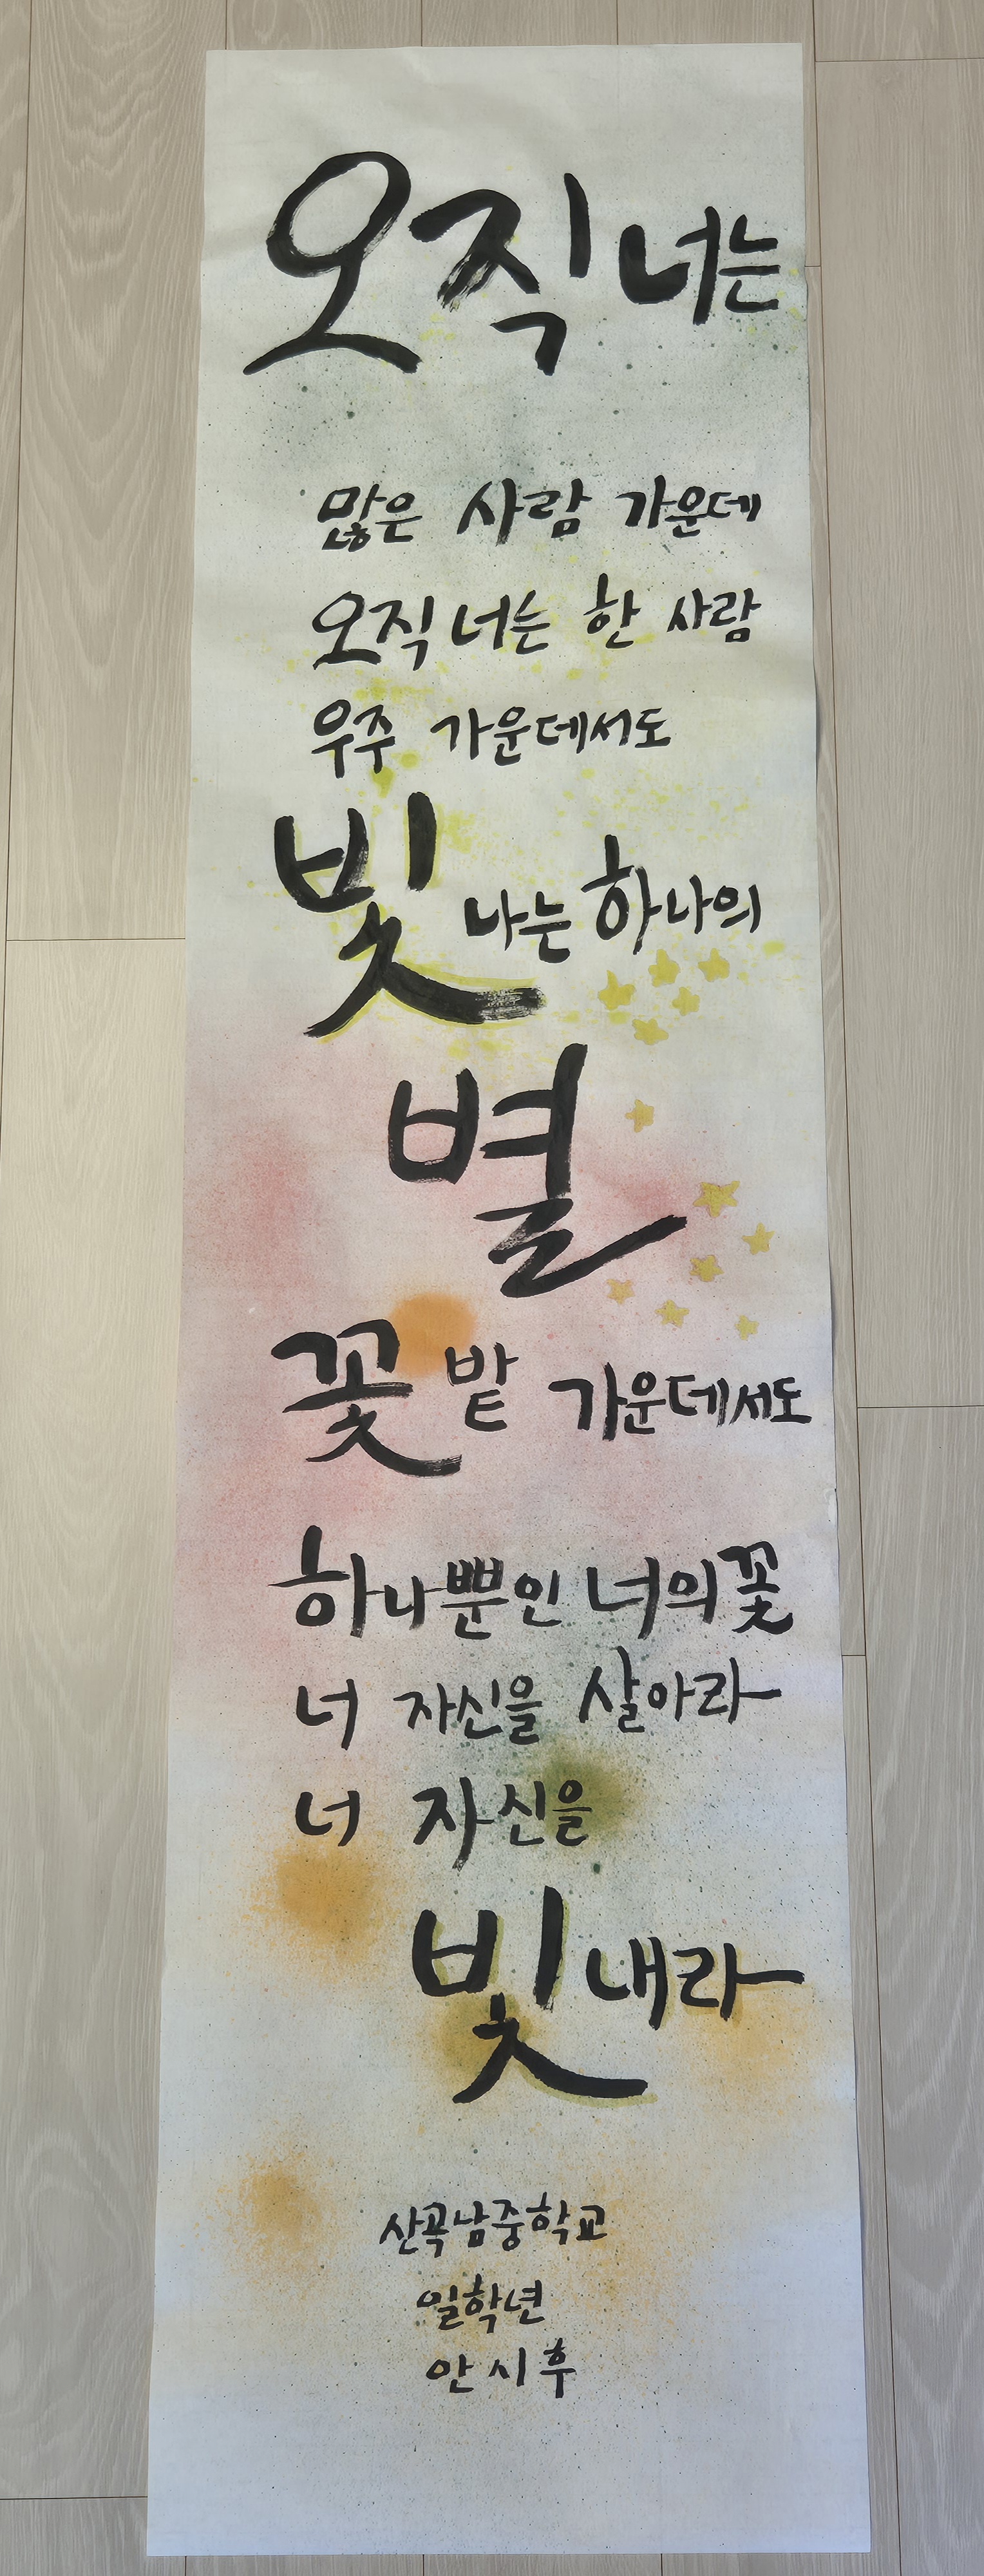 오직 너는
많은 사람 가운데
오직 너는 한 사람
우주 가운데서도
빛나는 하나의
별
꽃밭 가운데서도
하나뿐인 너의 꽃
너 자신을 살아라
너 자신을
빛내라
산곡남중학교
일학년
안시후